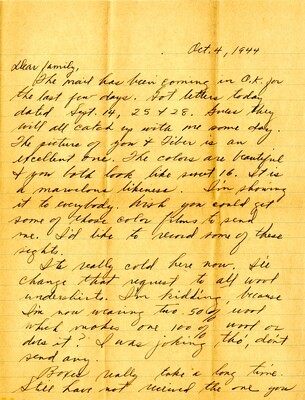 Oct. 4, 1944
Dear Family,
The mail has been coming in O.K. for
the last few days. Got letters today
dated Sept. 14, 25 & 28. Guess they
will all catch up with me some day.
The picture of you & Tiber is an
excellent one. The colors are beautiful
& you both look like sweet 16. It is
a marvelous likeness. I'm showing
it to everybody. Wish you could get
some of those color films to send
me. I'd like to record some of these
sights.
It's really cold here now. I'll
change that request to all wool
undershirts. I'm kidding, because
I'm now wearing two 50% wool
which makes one 100% wool or
does it? I was joking tho', don't
send any.
Boxes really take a long time.
Still have not received the one you